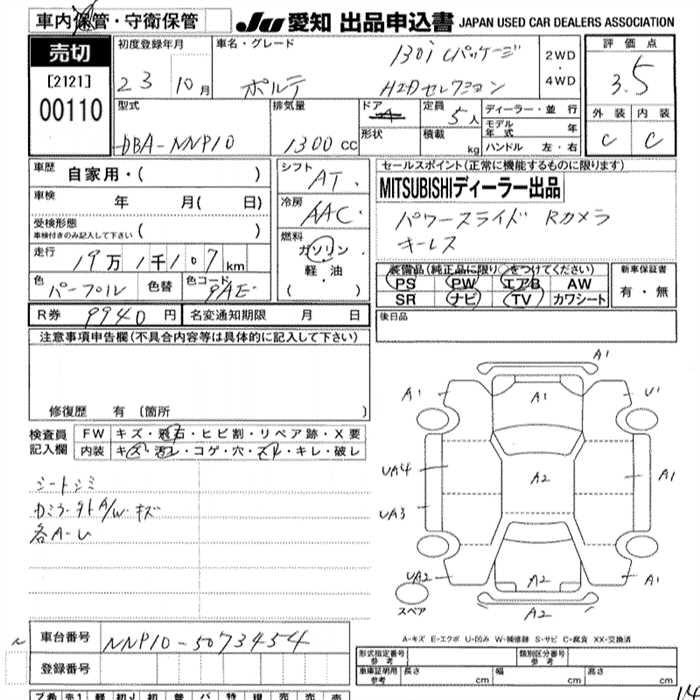 車内保管・守衛保管
JU 愛知 出品申込書 JAPAN USED CAR DEALERS ASSOCIATION
売切
[2121]
00110
初度登録年月
23 10月
車名・グレード
130i Cパッケージ
ポルテ HIDセレクション
2WD
・
4WD
評価点
3.5
外装 内装
C C
型式
DBA-NNP10
排気量
1300 cc
ドア
4
形状
定員
5人
積載
kg
ディーラー・並行
モデル年式 年
ハンドル 左・右
車歴
自家用・( )
車検
年 月( 日)
受検形態
車検付きのみ記入して下さい ( )
走行
19万1千107km
色
パープル
色替
色コード
9AE
シフト
AT
冷房
AAC
燃料
ガソリン
軽・油
( )
セールスポイント(正常に機能するものに限ります)
MITSUBISHIディーラー出品
パワースライド Rカメラ
キーレス
装備品(純正品に限り○をつけてください)
PS PW エアB AW
SR ナビ TV カワシート
新車保証書
有・無
R券 9940 円
名変通知期限 月 日
後日品
注意事項申告欄(不具合内容等は具体的に記入して下さい)
修復歴 有 [箇所 )
検査員記入欄
FW キズ・飛石・ヒビ割・リペア跡・X要
内装 キズ・汚レ・コゲ・穴・スレ・キレ・破レ
シートシミ
各A-U
A1
A1 A1 U1
UA4 A2 A1
UA3
UA2 A2 A1
スペア A2
A-キズ E-エクボ U-凹み W-補修跡 S-サビ C-腐食 XX-交換済
車台番号
NNP10-5073454
登録番号
形式指定番号 参考
類別区分番号 参考
車庫証明用 参考 長さ cm 幅 cm 高さ cm